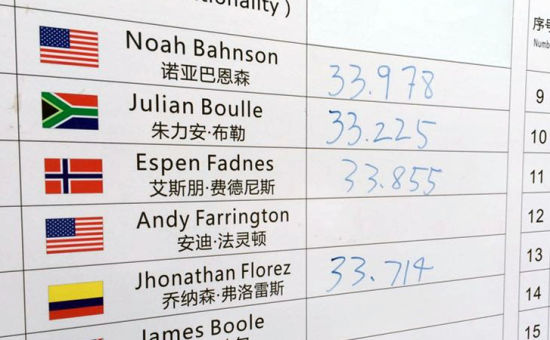 ionality )
Noah Bahnson
诺亚巴恩森
33.978
Julian Boulle
朱力安·布勒
33.225
Espen Fadnes
艾斯朋·费德尼斯
33.855
Andy Farrington
安迪·法灵顿
Jhonathan Florez
乔纳森·弗洛雷斯
33.714
James Boole
序号
Numbe
9
10
11
12
13
14
15